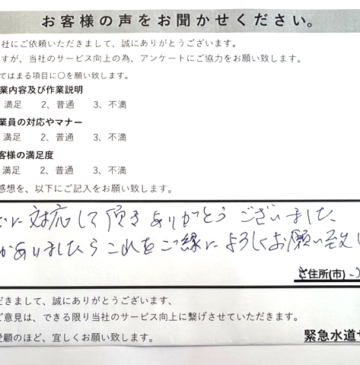 お客様の声をお聞かせください。
社にご依頼いただきまして、誠にありがとうございます。
すが、当社のサービス向上の為、アンケートにご協力をお願い致します。
てはまる項目に〇を願い致します。
業内容及び作業説明
満足 2、普通 3、不満
業員の対応やマナー
満足 2、普通 3、不満
客様の満足度
満足 2、普通 3、不満
感想を、以下にご記入をお願い致します。
に対応して頂きありがとうございました。
かありましたらこれをご縁によろしくお願い致し
ご住所(市)
だきまして、誠にありがとうございます、
ご意見は、できる限り当社のサービス向上に繋げさせていただきます。
愛顧のほど、宜しくお願い致します。
緊急水道サ